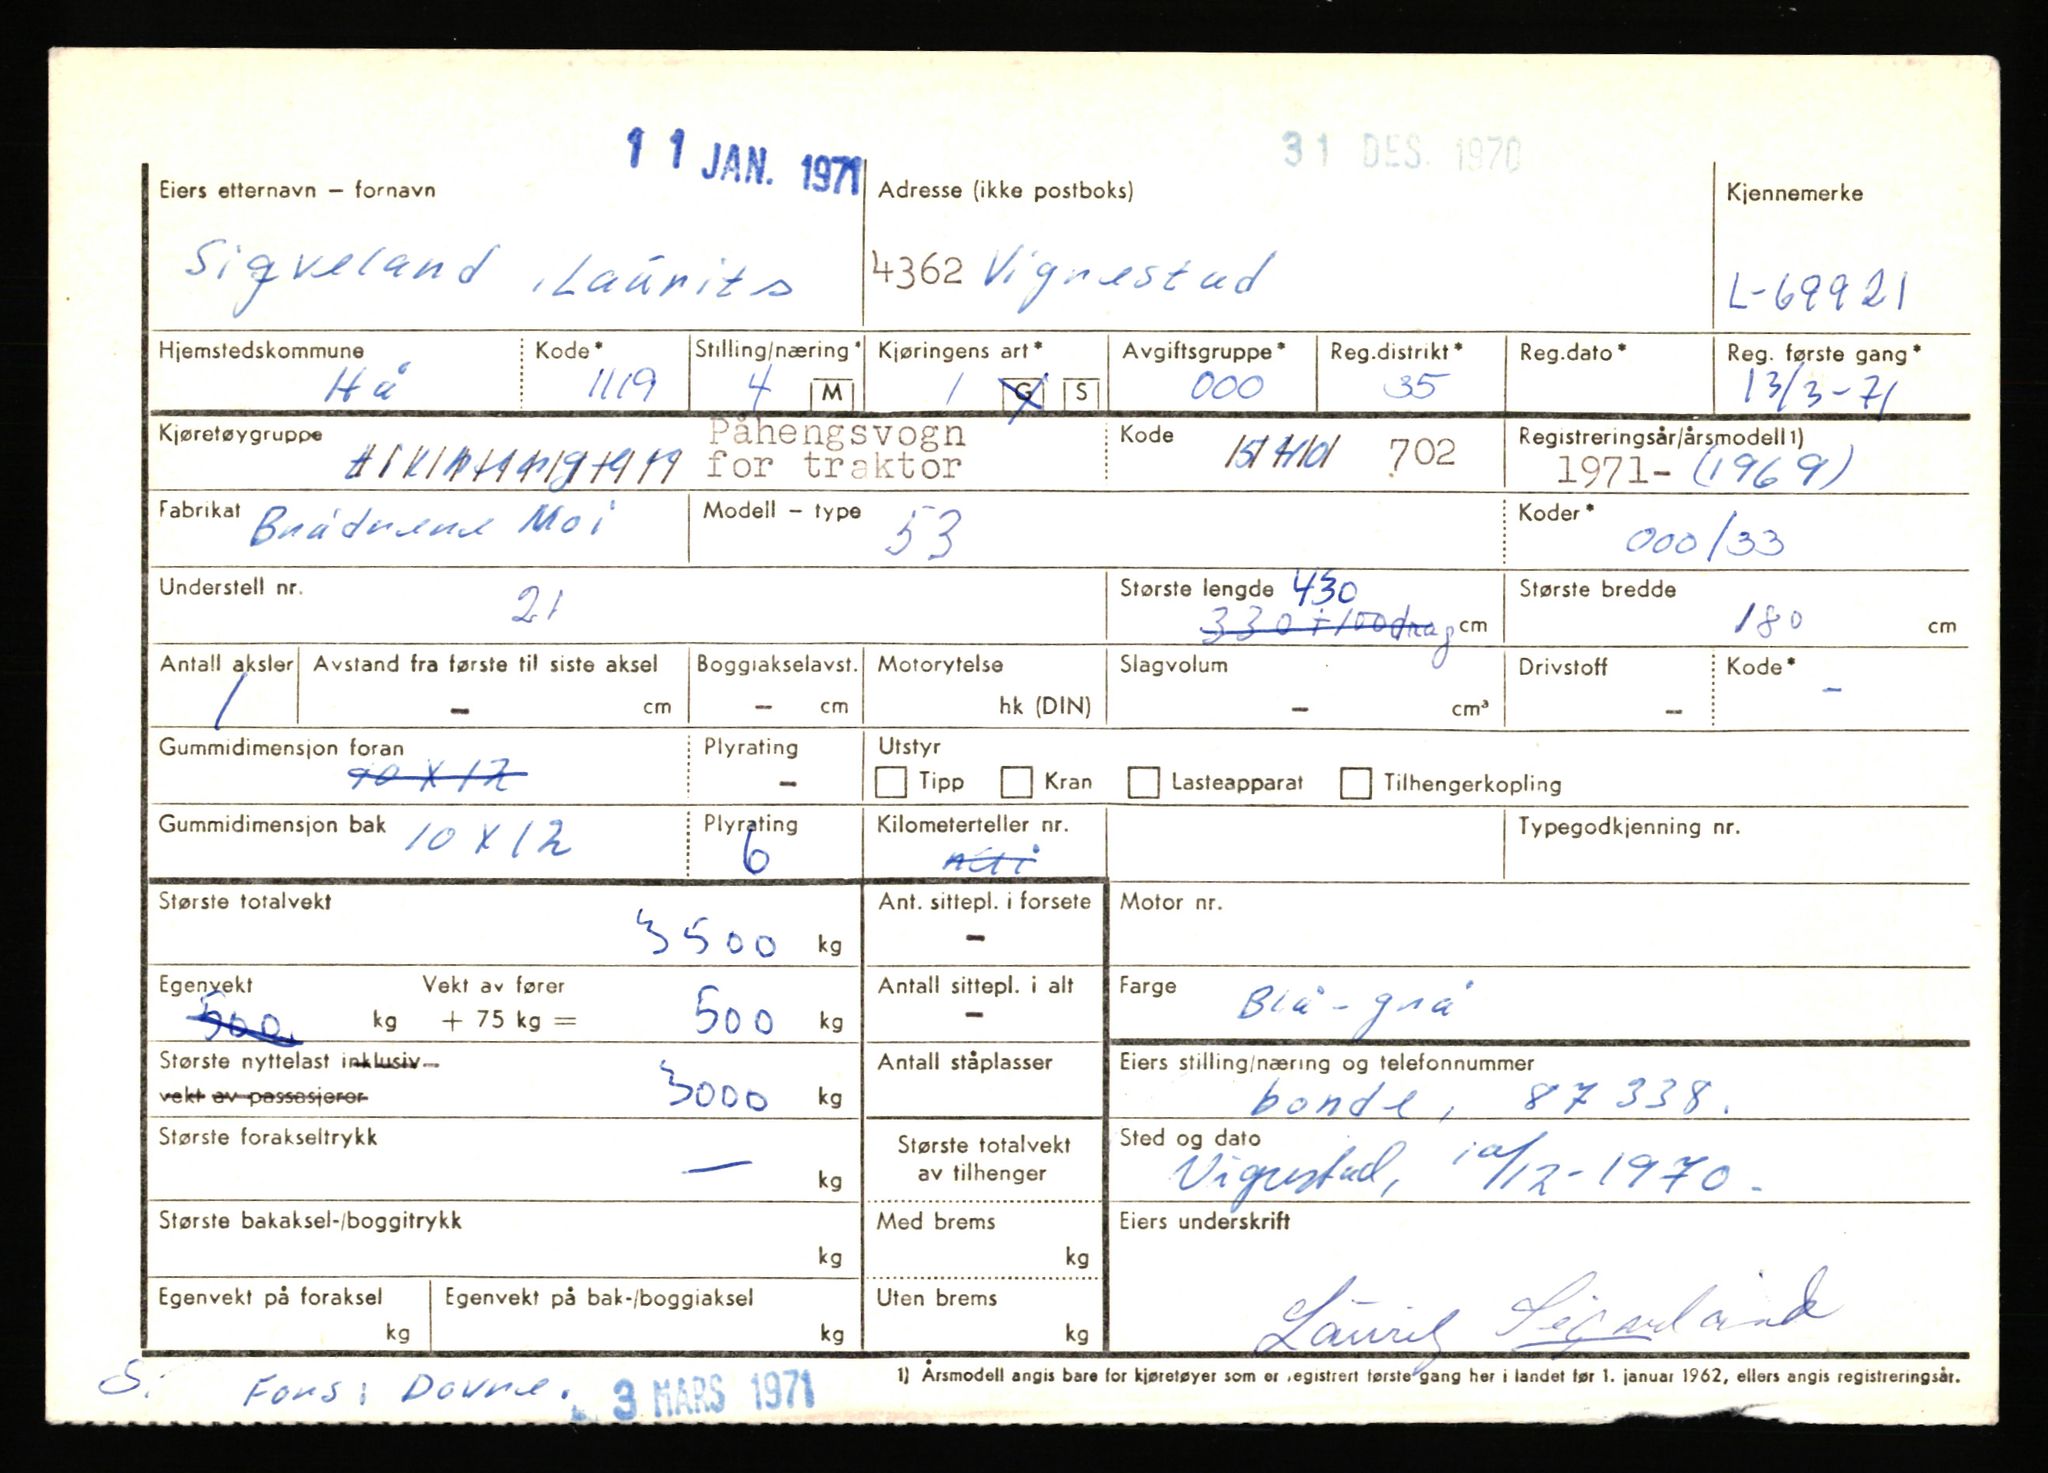 11 JAN. 1971
31 DES. 1970
Eiers etternavn – fornavn
Adresse (ikke postboks)
Kjennemerke
Sigveland, Laurits
4362 Vigrestad
L-69921
Hjemstedskommune
Kode*
Stilling/næring*
Kjøringens art*
Avgiftsgruppe*
Reg.distrikt*
Reg.dato*
Reg. første gang*
Hå
1119
4 M
1 G S
000
35
13/3-71
Kjøretøygruppe
Påhengsvogn
for traktor
Kode
702
Registreringsår/årsmodell 1)
1971- (1969)
Fabrikat
Brødrene Moi
Modell – type
53
Koder*
000/33
Understell nr.
21
Største lengde 430
330+100 drag cm
Største bredde
180 cm
Antall aksler
1
Avstand fra første til siste aksel
– cm
Boggiakselavst.
– cm
Motorytelse
hk (DIN)
Slagvolum
– cm³
Drivstoff
–
Kode*
–
Gummidimensjon foran
10 X 12
Plyrating
–
Utstyr
Tipp Kran Lasteapparat Tilhengerkopling
Gummidimensjon bak 10 X 12
Plyrating
6
Kilometerteller nr.
Typegodkjenning nr.
Største totalvekt
3500 kg
Ant. sittepl. i forsete
–
Motor nr.
Egenvekt Vekt av fører
500 kg + 75 kg = 500 kg
Antall sittepl. i alt
–
Farge
Blå-grå
Største nyttelast inklusiv
vekt av passasjerer 3000 kg
Antall ståplasser
Eiers stilling/næring og telefonnummer
bonde, 87338.
Største forakseltrykk
— kg
Største totalvekt
av tilhenger
Sted og dato
Vigrestad, 10/12-1970.
Største bakaksel-/boggitrykk
kg
Med brems
kg
Eiers underskrift
Egenvekt på foraksel
kg
Egenvekt på bak-/boggiaksel
kg
Uten brems
kg
Laurits Sigveland
1) Årsmodell angis bare for kjøretøyer som er registrert første gang her i landet før 1. januar 1962, ellers angis registreringsår.
S. Fors: Dovne.
3 MARS 1971